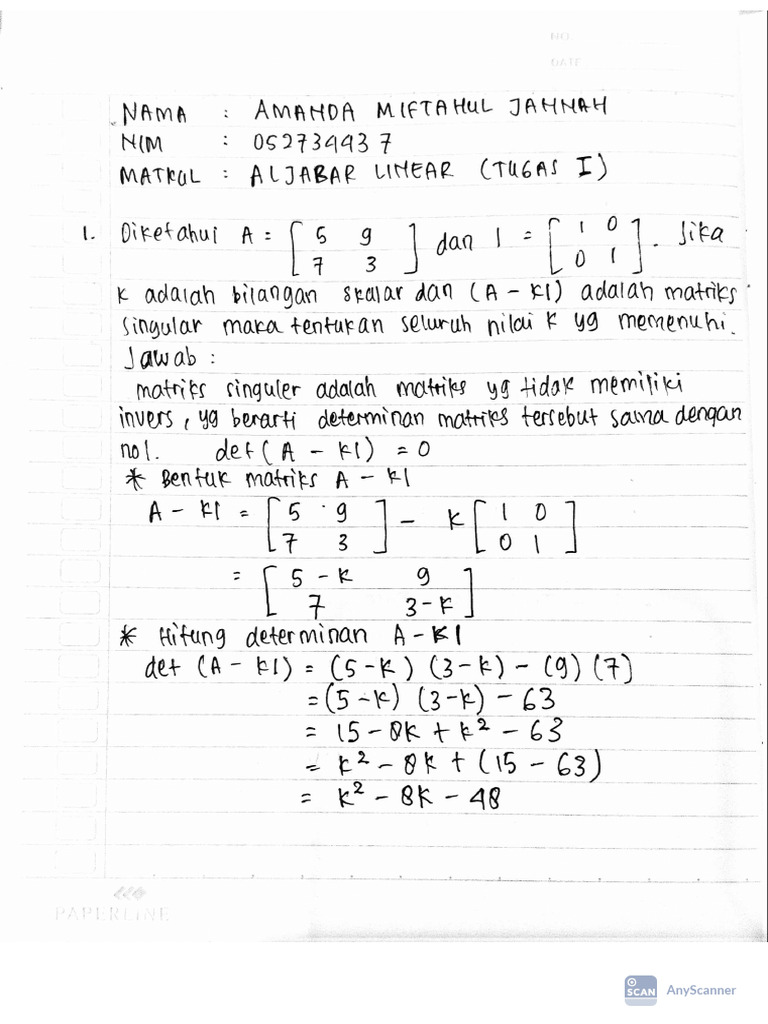 NO
DATE
NAMA : AMANDA MIFTAHUL JANNAH
NIM : 052734437
MATKUL : ALJABAR LINEAR (TUGAS I)
1. Diketahui A = [5 9 dan I = [1 0 . Jika
7 3] 0 1]
K adalah bilangan skalar dan (A - KI) adalah matriks
singular maka tentukan seluruh nilai K yg memenuhi.
Jawab :
matriks singuler adalah matriks yg tidak memiliki
invers, yg berarti determinan matriks tersebut sama dengan
nol. det(A - KI) = 0
* Bentuk matriks A - KI
A - KI = [5 9 - K [1 0
7 3] 0 1]
= [5 - K 9
7 3 - K]
* Hitung determinan A - KI
det (A - KI) = (5 - K) (3 - K) - (9) (7)
= (5 - K) (3 - K) - 63
= 15 - 8K + K² - 63
= K² - 8K + (15 - 63)
= K² - 8K - 48
PAPERLINE
SCAN AnyScanner